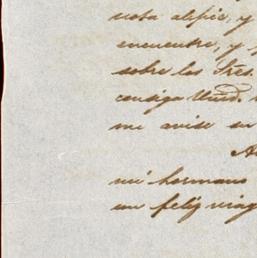 nota al pie, y
encuentre, y
sobre los Sres.
consiga Umd.
me avise su
mi hermano
un feliz viag